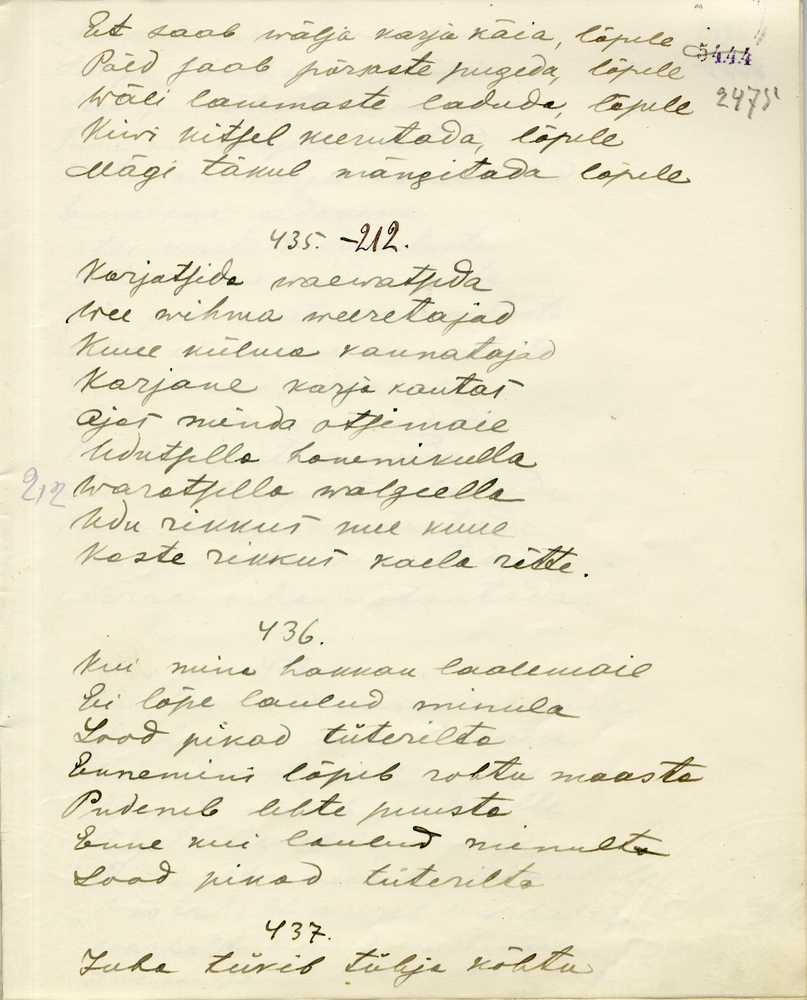 Et saab wälja karja käia, lõpele
5444
Põld saab põrsaste pugeda, lõpele
2475
Wäli lammaste laduda, lõpele
Kiwi kitsel keerutada, lõpele
Mägi täkul mängitada lõpele
435. -212.
Karjatsida waewatsida
Wee wihma weeretajad
Kuue külma kannatajad
Karjane karja kautas
Ajas minda otsimaie
Udutsella hommikulla
212
Waratsella walgeella
Udu rikkus mu kuue
Kaste rikkus kaela rätte.
436.
Kui mina hakkan laalemaie
Ei lõpe laulud minula
Lood pikad tüterilta
Ennemini lõpeb rohtu maasta
Pudeneb lehte puusta
Enne kui laulud minulta
Lood pikad tüterilta
437.
Juba tükib tühja kõhtu